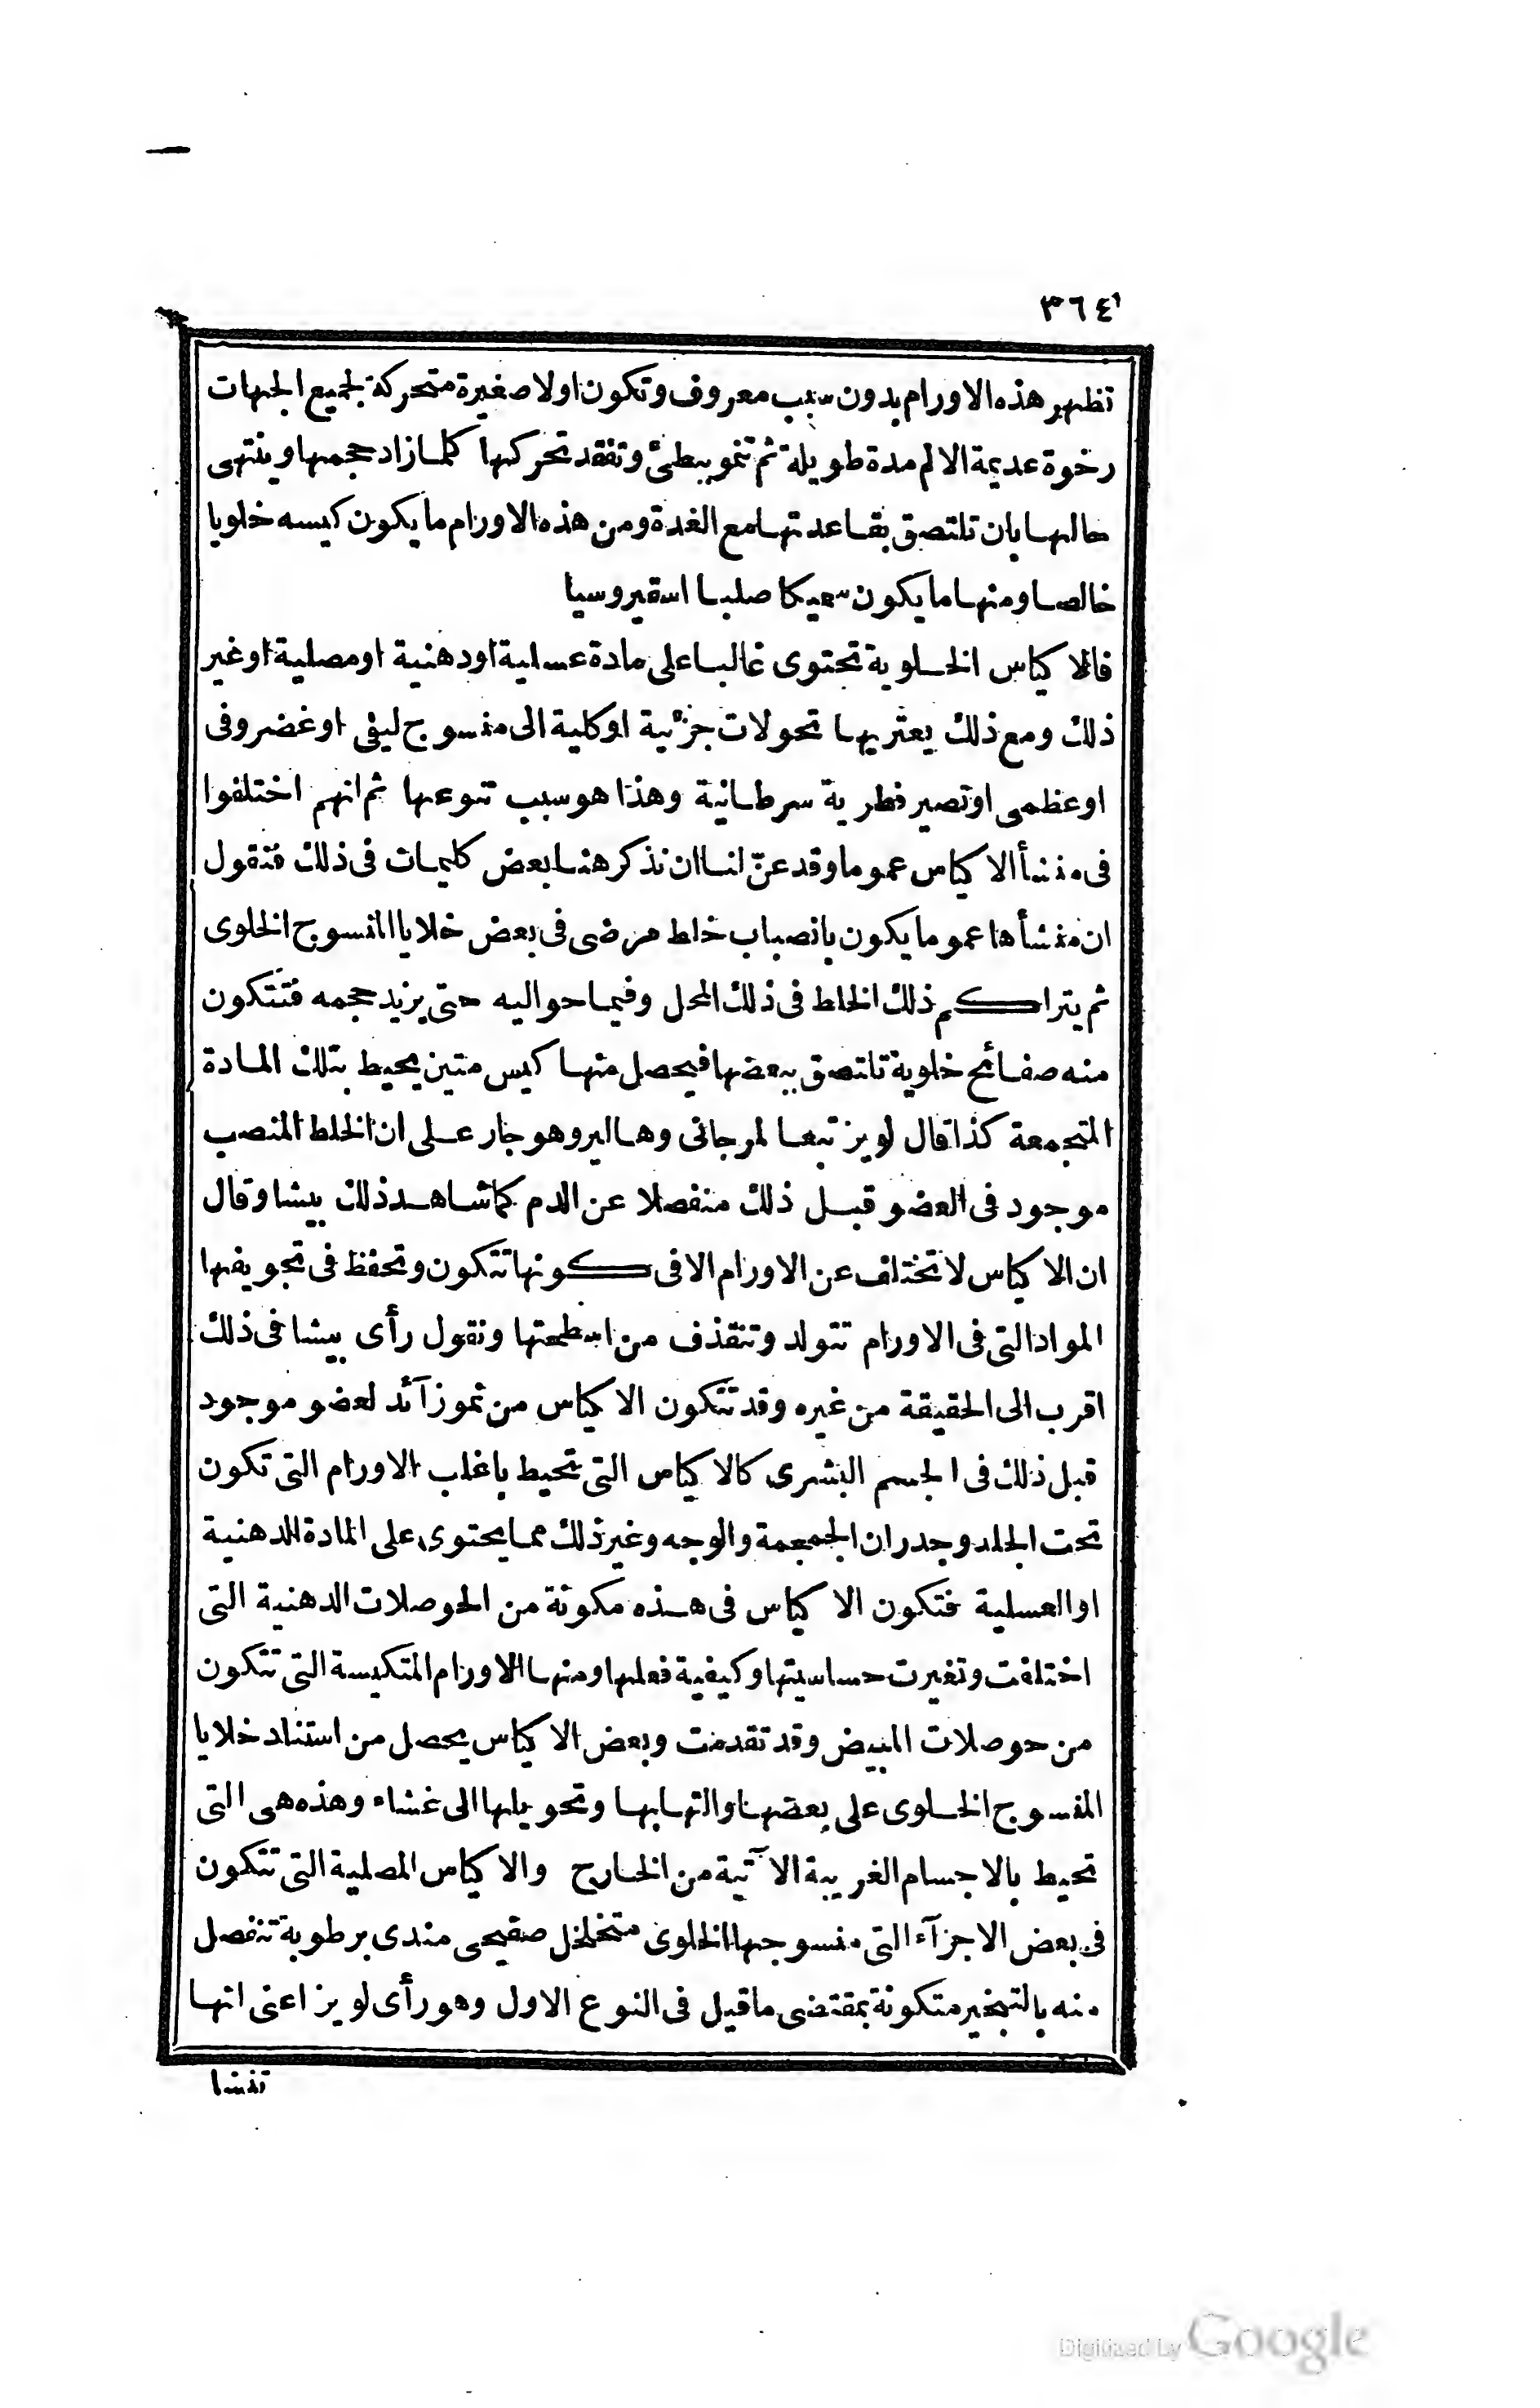 ٣٦٤
تظهر هذه الاورام بدون سبب معروف وتكون اولا صغيرة متحركة لجميع الجهات
رخوة عديمة الالم مدة طويلة ثم تنمو ببطئ وتفقد تحركها كلما زاد حجمها وينتهى
حالها بان تلتصق بقاعدتها مع الغدة ومن هذه الاورام ما يكون كيسه خلويا
خالصا ومنها ما يكون سميكا صلبا اسقيروسيا
فالاكياس الخلوية تحتوى غالبا على مادة عسلية او دهنية او مصلية او غير
ذلك ومع ذلك يعتريها تحولات جزئية او كلية الى منسوج ليفى او غضروفى
او عظمى او تصير فطرية سرطانية وهذا هو سبب تنوعها ثم انهم اختلفوا
فى منشأ الاكياس عموما وقد عنّ لنا ان نذكر هنا بعض كليمات فى ذلك فنقول
ان منشأها عموما يكون بانصباب خلط مرضى فى بعض خلايا المنسوج الخلوى
ثم يتراكم ذلك الخلط فى ذلك المحل وفيما حواليه حتى يزيد حجمه فتتكون
منه صفائح خلوية تلتصق ببعضها فيحصل منها كيس متين يحيط بتلك المادة
المتجمعة كذا قال لويز تبعا لمرجانى وهالير وهو جار على ان الخلط المنصب
موجود فى العضو قبل ذلك منفصلا عن الدم كما شاهد ذلك بيشا وقال
ان الاكياس لا تختلف عن الاورام الا فى كونها تتكون وتحفظ فى تجويفها
المواد التى فى الاورام تتولد وتنقذف من اسطحتها ونقول رأى بيشا فى ذلك
اقرب الى الحقيقة من غيره وقد تتكون الاكياس من نمو زآئد لعضو موجود
قبل ذلك فى الجسم البشرى كالاكياس التى تحيط باغلب الاورام التى تكون
تحت الجلد وجدران الجمجمة والوجه وغير ذلك مما يحتوى على المادة الدهنية
او العسلية فتكون الاكياس فى هذه مكونة من الحوصلات الدهنية التى
اختلفت وتغيرت حساسيتها وكيفية فعلها ومنها الاورام المتكيسة التى تتكون
من حوصلات المبيض وقد تقدمت وبعض الاكياس يحصل من استناد خلايا
المنسوج الخلوى على بعضها والتهابها وتحويلها الى غشاء وهذه هى التى
تحيط بالاجسام الغريبة الآتية من الخارج والاكياس المصلية التى تتكون
فى بعض الاجزآء التى منسوجها الخلوى متخلخل صفيحى مندى برطوبة تنفصل
منه بالتبخير متكونة بمقتضى ما قيل فى النوع الاول وهو رأى لويز اعنى انها
تنشا
Digitized by Google